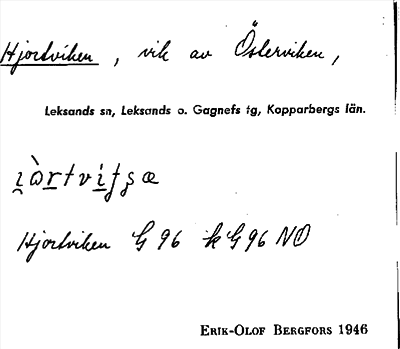 Hjortviken, vik av Österviken,
Leksands sn, Leksands o. Gagnefs tg, Kopparbergs län.
Hjortviken G 96 k G 96 NO
ERIK-OLOF BERGFORS 1946